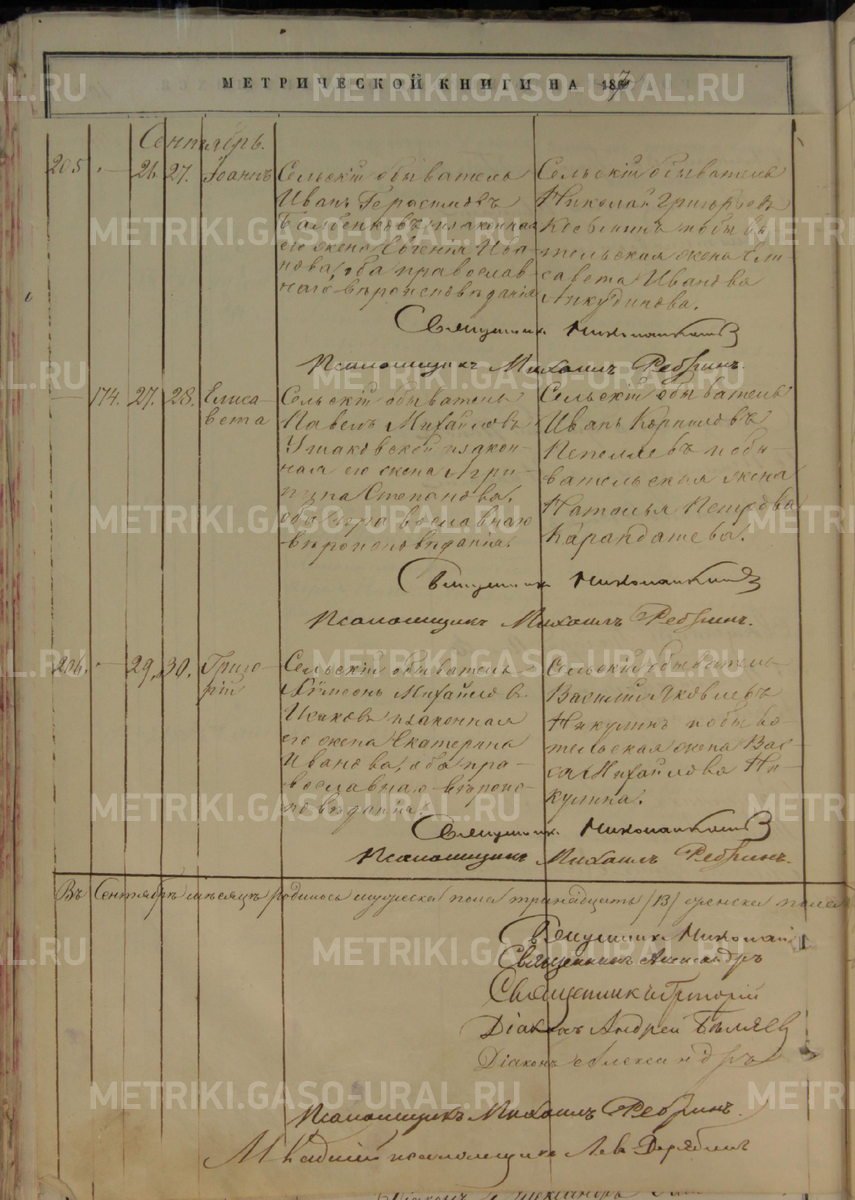 МЕТРИЧЕСКОЙ КНИГИ НА 187
Сентябрь.
205 " 26. 27. Іоаннъ
Сельскій обыватель
Иванъ Герасимовъ
и законная
его жена Евгенія Ива-
нова, оба православ-
наго вѣроисповѣданія
Сельскій обыватель
Николай Григорьевъ
и обыва-
тельская жена Ели-
савета Иванова
Анкудинова.
Священникъ
Псаломщикъ Михаилъ Ребринъ.
— 174. 27. 28. Елиса-
вета
Сельскій обыватель
Павелъ Михайловъ
Ушаковской и закон-
ная его жена Агри-
пина Степанова,
оба православнаго
вѣроисповѣданія.
Сельскій обыватель
Иванъ Корниловъ
Пепеляевъ и обы-
вательская жена
Наталья Петрова
Карандашева.
Священникъ
Псаломщикъ Михаилъ Ребринъ.
206. " 29. 30. Григо-
рій
Сельскій обыватель
Михайловъ
Исаковъ и законная
его жена Екатерина
Иванова, оба пра-
вославнаго вѣроис-
повѣданія.
Сельскій обыватель
Василій Яковлевъ
Никулинъ и обыва-
тельская жена Вас-
са Михайлова Ни-
кулина.
Священникъ
Псаломщикъ Михаилъ Ребринъ.
Въ Сентябрѣ мѣсяцѣ родилось мужеска пола тринадцать /13/ женска пола
Священникъ Николай
Священникъ Александръ
Священникъ Григорій
Діаконъ Андрей Бѣляев
Діаконъ Александръ
Псаломщикъ Михаилъ Ребринъ.
Младшій псаломщикъ Левъ Дерябинъ
METRIKI.GASO-URAL.RU